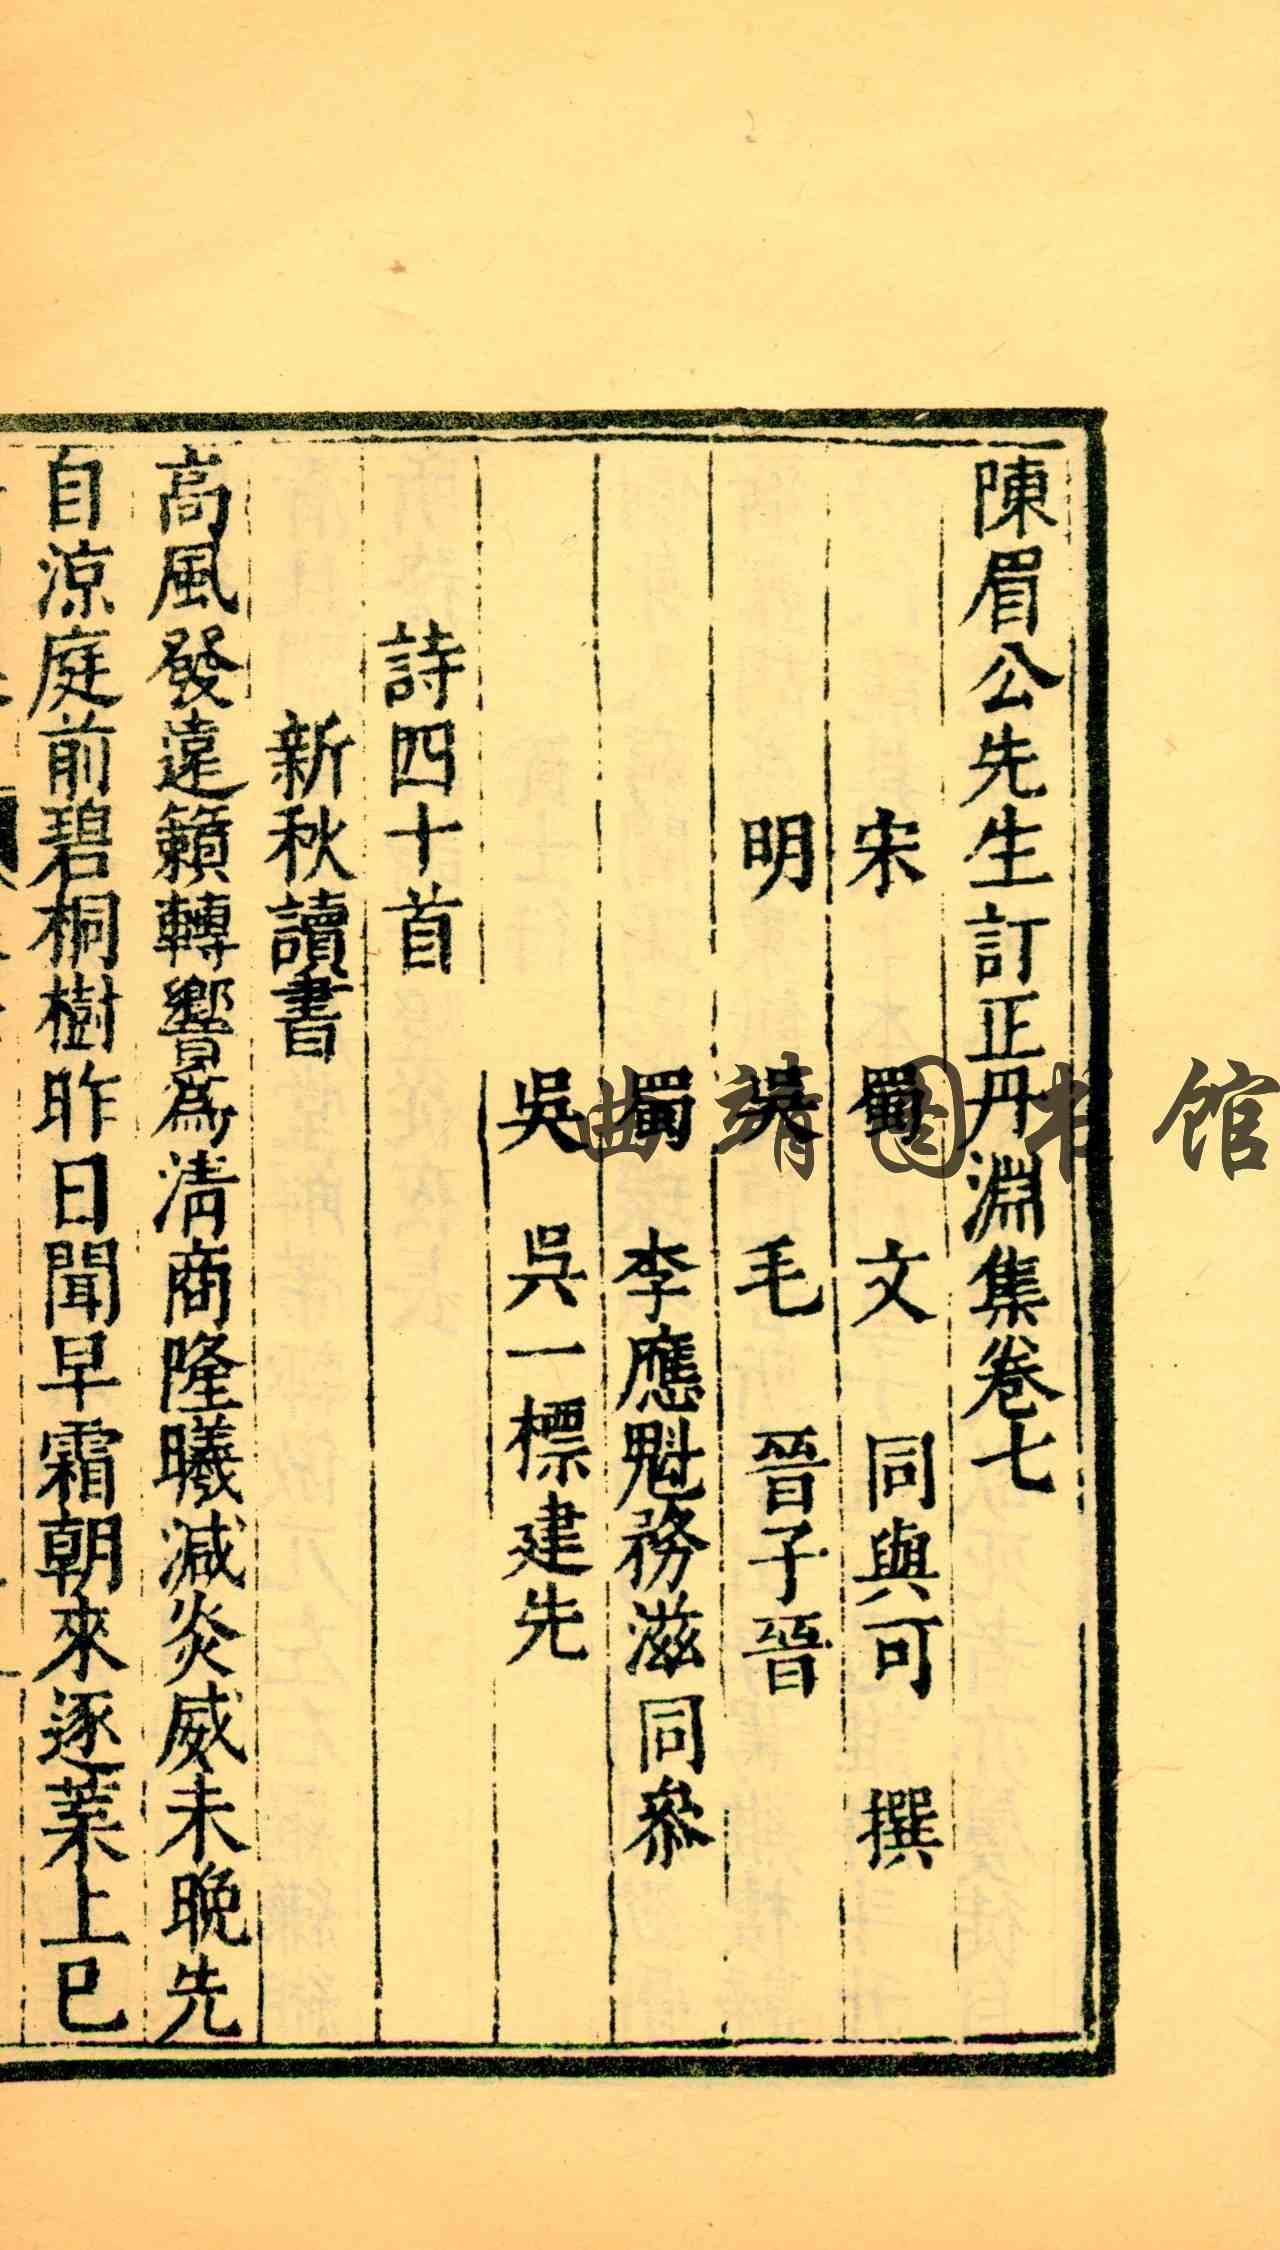 陳眉公先生訂正丹淵集卷七
宋 蜀 文 同與可 撰
明 吳 毛 晉子晉
蜀 李應魁務滋同叅
吳 吳一標建先
詩四十首
新秋讀書
高風發遠籟轉響爲清商隆曦减炎威未晚先
自涼庭前碧桐樹昨日聞早霜朝來逐葉上已
曲靖图书馆